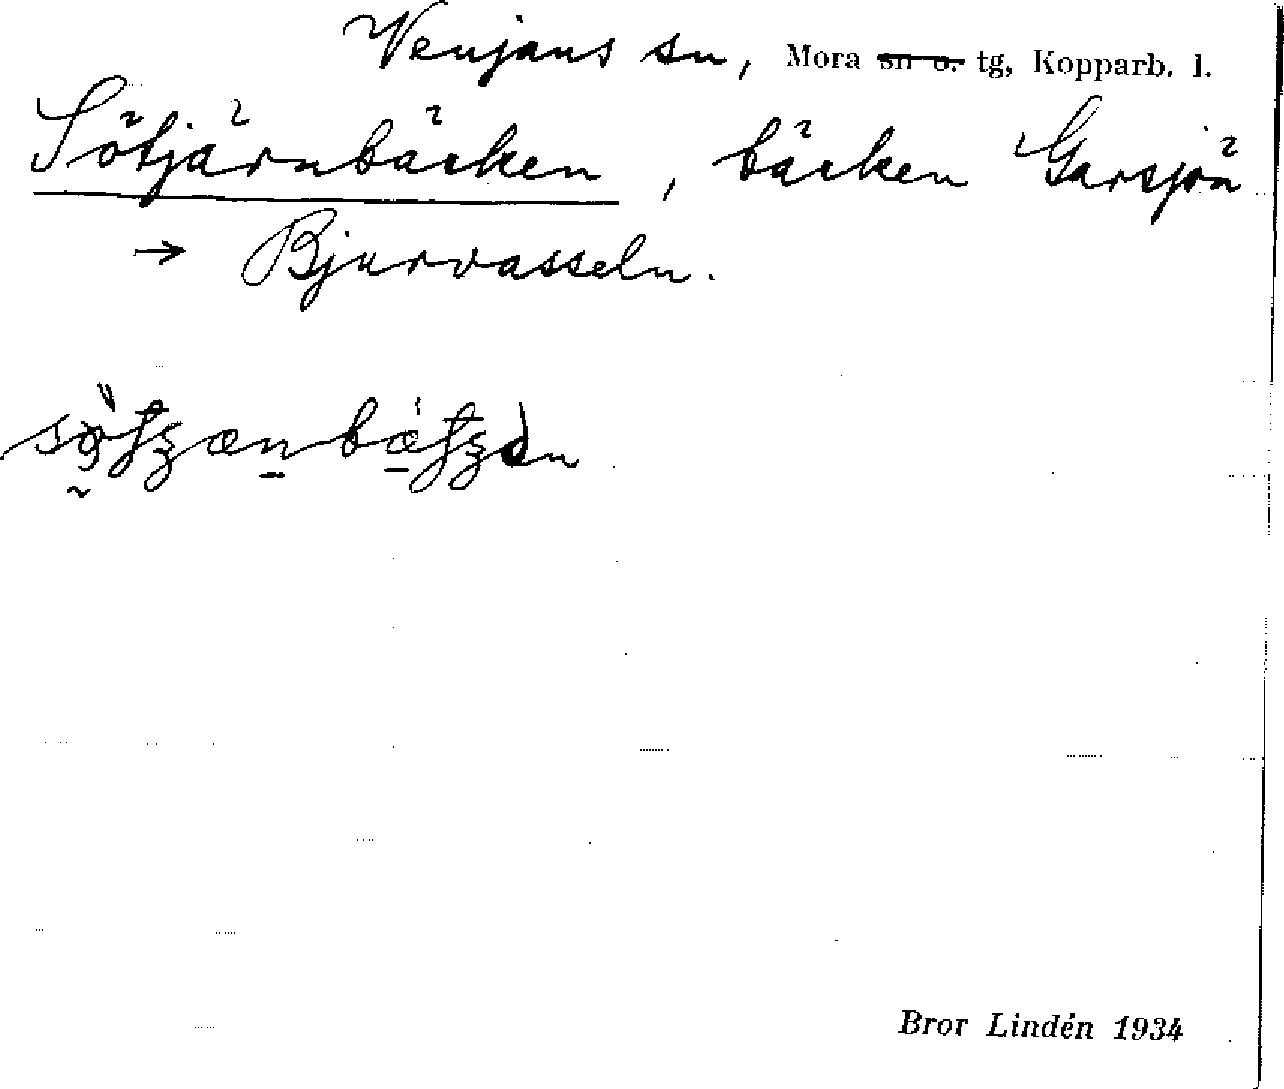 Venjans sn, Mora sn o. tg, Kopparb. l.
Sötjärnbäcken, bäcken Garsjön
→ Bjurvasseln.
Bror Lindén 1934